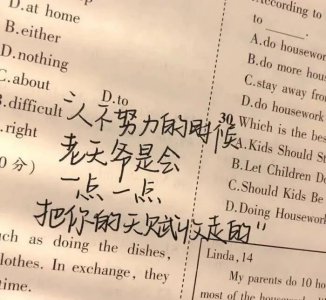 D.at home
B.either
D.nothing
C.about
D.to
B.difficult
.right
0分)
ch as doing the dishes,
lothes. In exchange, they
time.
人不努力的时候
老天爷是会
一点一点
把你的天赋收走的"
According to
to
A.do housewor
B.do more hou
C.stay away fro
D.do housework
30. Which is the bes
A.Kids Should S
B.Let Children Do
C.Should Kids Be
D.Doing Housewo
Linda, 14
My parents do 10 ho
most of the housewo